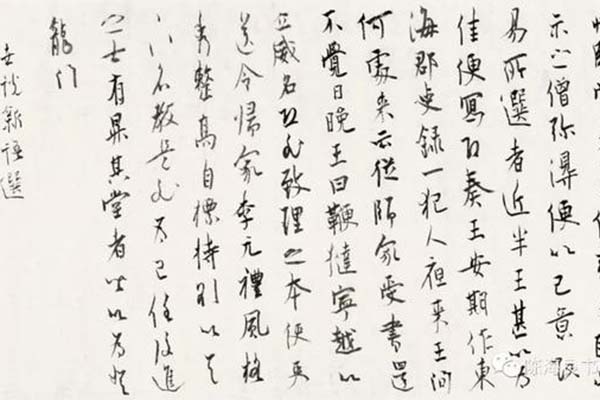 示之僧弥得便以己意改
易所選者近半王甚以為
佳便寫即奏王安期作東
海郡吏錄一犯人夜來王問
何處來云從師家受書還
不覺日晚王曰鞭撻寧越以
立威名恐非致理之本使吏
送令歸家李元禮風格
秀整高自標持欲以天
下名教是非為己任後進
之士有昇其堂者皆以為登
龍門
世說新語選